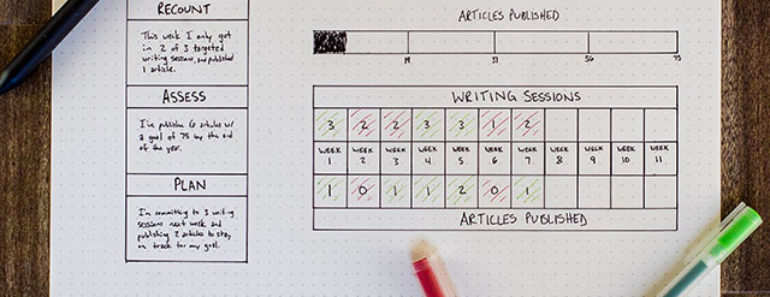 RECOUNT
This week I only got
in 2 of 3 targeted
writing sessions, and published
1 article.
ASSESS
I've publishe 6 articles w/
a goal of 75 by the end
of the year.
PLAN
I'm committing to 3 writing
sessions next week and
publishing 2 articles to stay
on track for my goal.
ARTICLES PUBLISHED
37 56 75
WRITING SESSIONS
3 2 2 3 3 1 2
WEEK 1 WEEK 2 WEEK 3 WEEK 4 WEEK 5 WEEK 6 WEEK 7 WEEK 8 WEEK 9 WEEK 10 WEEK 11
1 0 1 1 2 0 1
ARTICLES PUBLISHED